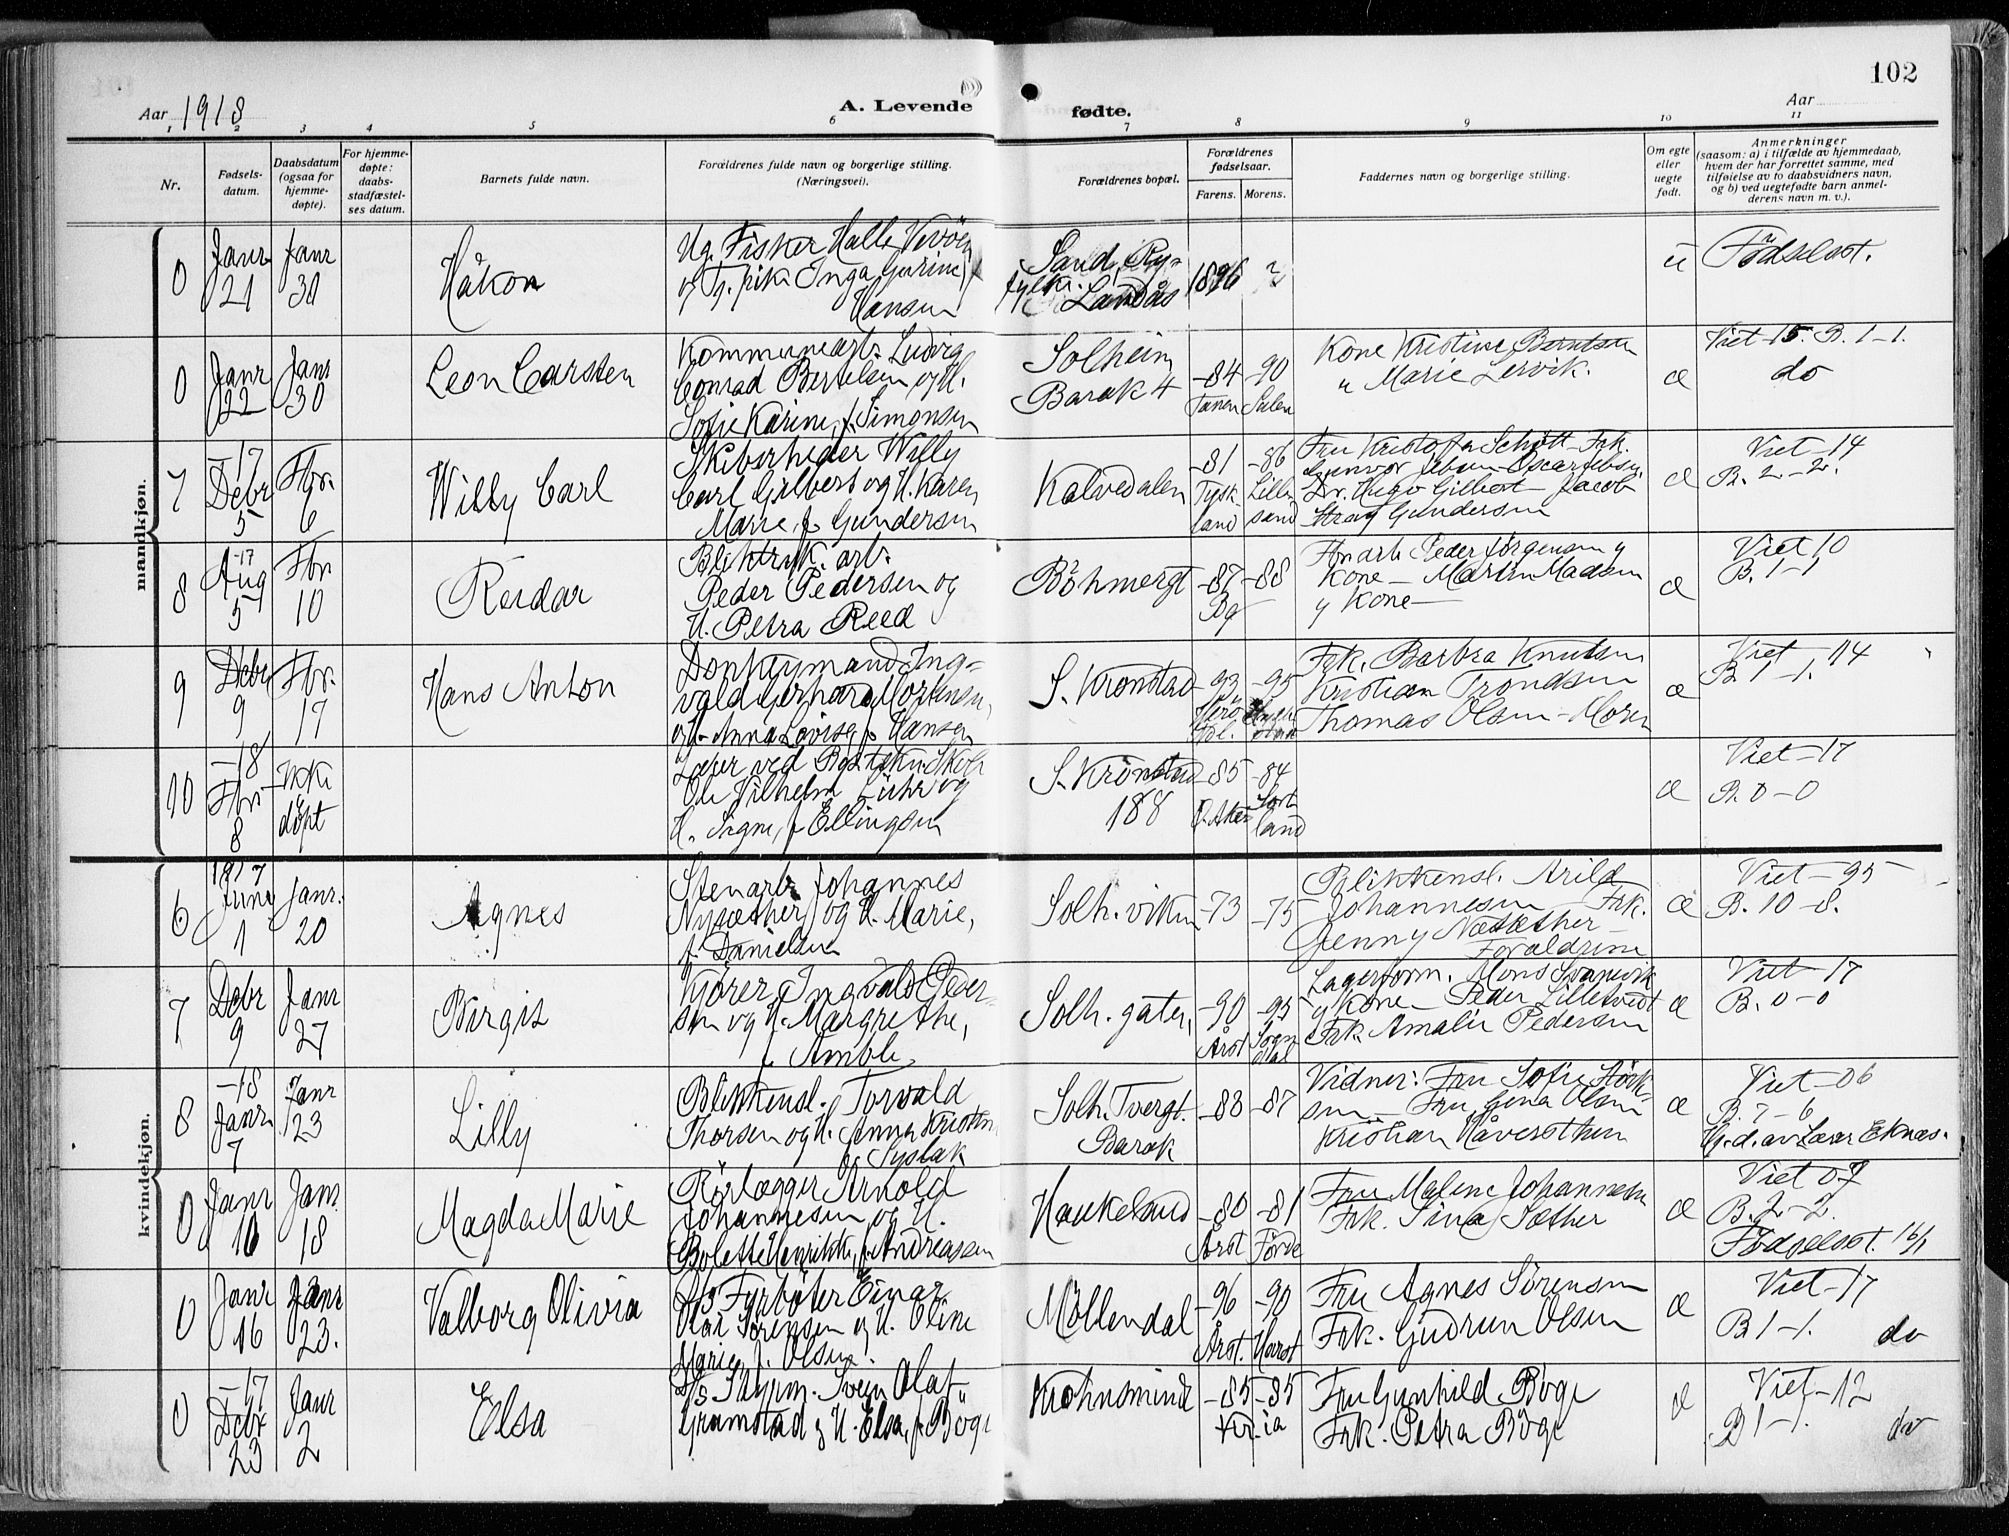 102
Aar 1918
A. Levende fødte.
Aar
1 2 3 4 5 6 7 8 9 10 11
Nr.
Fødsels-
datum.
Daabsdatum
(ogsaa for
hjemme-
døpte).
For hjemme-
døpte:
daabs-
stadfæstel-
ses datum.
Barnets fulde navn.
Forældrenes fulde navn og borgerlige stilling.
(Næringsvei).
Forældrenes bopæl.
Forældrenes
fødselsaar.
Farens. Morens.
Faddernes navn og borgerlige stilling.
Om egte
eller
uegte
født.
Anmerkninger
(saasom: a) i tilfælde av hjemmedaab,
hvem der har forrettet samme, med
tilføielse av to daabsvidners navn,
og b) ved uegtefødte barn anmel-
derens navn m. v.).
mandkjøn.
0
Janr
21
Janr
30
Håkon
Ug. Fisker Halle
og Ug. pik. Inga Gurine,
Hansen
Sand, Ry-
fylke.
Landås
1896
u
Födselsst.
0
Janr
22
Janr
30
Leon Carsten
Kommunearb. Ludvig
Conrad Bertelsen og H.
Sofie Karine, f. Simonsen
Solheim
Barak 4
-84
Tanen
-90
Sulen
Kone Kristine Berntsen
" Marie Lervik.
æ
Viet-15. B. 1-1.
do
7
-17
Debr
5
Fbr.
6
Willy Carl
Skibsrheder Willy
Carl Gilbert og H. Karen
Marie, f. Gundersen
Kalvedalen
-81
Tysk
land
-86
Lille
sand
Fru Kristofa Schött - Frk.
Gunvor Jebsen - Oscar Jebsen
Dr. Hugo Gilbert - Jacob
Stray Gundersen
æ
Viet-14
B. 2-2.
8
-17
Aug
5
Fbr
10
Reidar
Bliktryk. arb.
Peder Pedersen og
H. Petra Reed
Böhmergt
-87
Bg
-88
arb Peder Jørgensen y
Kone - Martin Madsen
y Kone-
æ
Viet 10
B. 1-1
9
Debr
9
Fbr.
17
Hans Anton
Donkeymand Ing-
vald Gerhard Mortensen,
og H. Anna Lovise, f. Hansen
S. Kronstad
-93
-95
Frk. Barbra Knutsen
Kristian Trondsen
Thomas Olsen - Moren
æ
Viet-14
B 1-1.
10
-18
Fbr
8
Ikke
døpt
Lærer ved Skole
Ole Vilhelm og
H. Signe, f. Ellingsen
S. Kronstad
188
-85
Aker
-84
Sort
land
æ
Viet-17
B. 0-0
kvindekjøn.
6
1917
Juni
1
Janr.
20
Agnes
Stenarb. Johannes
Nysæther og H. Marie,
f. Danielsen
Solh. viken
-73
-75
Blikkensl. Arild
Johannesen - Frk.
Jenny Nesæther -
Forældrene
æ
Viet-95
B. 10-8.
7
Debr
9
Janr
27
Birgit
Kjører Ingvald Peder-
sen og H. Margrethe,
f. Amble
Solh. gaten,
-90
Årst
-95
Sogn
dal
Lagerform. Mons Svanevik
y Kone - Peder Lilletvedt
Frk. Amalie Pedersen
æ
Viet-17
B. 0-0
8
-18
Janr
7
Janr
23
Lilly
Blikkensl. Torvald
Thorsen og H. Anna Kristine
f. Syslak
Solh. Tvergt.
Barak
-88
-87
Vidner: Fru Sofie
sen - Fru Gina Olsen
Kristian Håversthun
æ
Viet-06
B. 7-6
H.d. av Lærer Eknæs.
0
Janr
10
Janr
18
Magda Marie
Rörlægger Arnold
Johannesen og H.
Bolette Henrikke, f. Andreassen
Haukeland
-80
Årst
-81
Förde
Fru Malene Johannesen
Frk. Sina Sæther
æ
Viet 07
B. 2-2.
Födselsst. 16/1
0
Janr
16
Janr
23.
Valborg Olivia
D/s Fyrbøter Einar
Olai Sörensen og H. Oline
Marie, f. Olsen.
Möllendal
-96
Årst.
-90
Harst
Fru Agnes Sörensen
Frk. Gudrun Olsen
æ
Viet-17
B 1-1.
do
0
-17
Debr
23
Janr
2
Elsa
D/s Styrm. Svein Olaf
Gramstad og H. Elsa, f. Böge
Krohnsminde
-85 -85
Kr.ia
Fru Gunhild Böge
Frk. Petra Böge
æ
Viet-12
B 1-1.
do